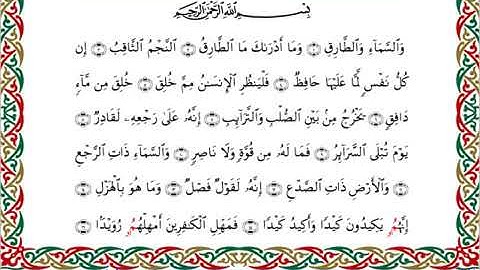 بِسْمِ ٱللَّهِ ٱلرَّحْمَٰنِ ٱلرَّحِيمِ
وَٱلسَّمَآءِ وَٱلطَّارِقِ ۝ وَمَآ أَدْرَىٰكَ مَا ٱلطَّارِقُ ۝ ٱلنَّجْمُ ٱلثَّاقِبُ ۝ إِن
كُلُّ نَفْسٍ لَّمَا عَلَيْهَا حَافِظٌ ۝ فَلْيَنظُرِ ٱلْإِنسَٰنُ مِمَّ خُلِقَ ۝ خُلِقَ مِن مَّآءٍ
دَافِقٍ ۝ يَخْرُجُ مِنۢ بَيْنِ ٱلصُّلْبِ وَٱلتَّرَآئِبِ ۝ إِنَّهُۥ عَلَىٰ رَجْعِهِۦ لَقَادِرٌ ۝
يَوْمَ تُبْلَى ٱلسَّرَآئِرُ ۝ فَمَا لَهُۥ مِن قُوَّةٍ وَلَا نَاصِرٍ ۝ وَٱلسَّمَآءِ ذَاتِ ٱلرَّجْعِ
۝ وَٱلْأَرْضِ ذَاتِ ٱلصَّدْعِ ۝ إِنَّهُۥ لَقَوْلٌ فَصْلٌ ۝ وَمَا هُوَ بِٱلْهَزْلِ ۝
إِنَّهُمُۥ يَكِيدُونَ كَيْدًا ۝ وَأَكِيدُ كَيْدًا ۝ فَمَهِّلِ ٱلْكَٰفِرِينَ أَمْهِلْهُمُۥ رُوَيْدًۢا ۝